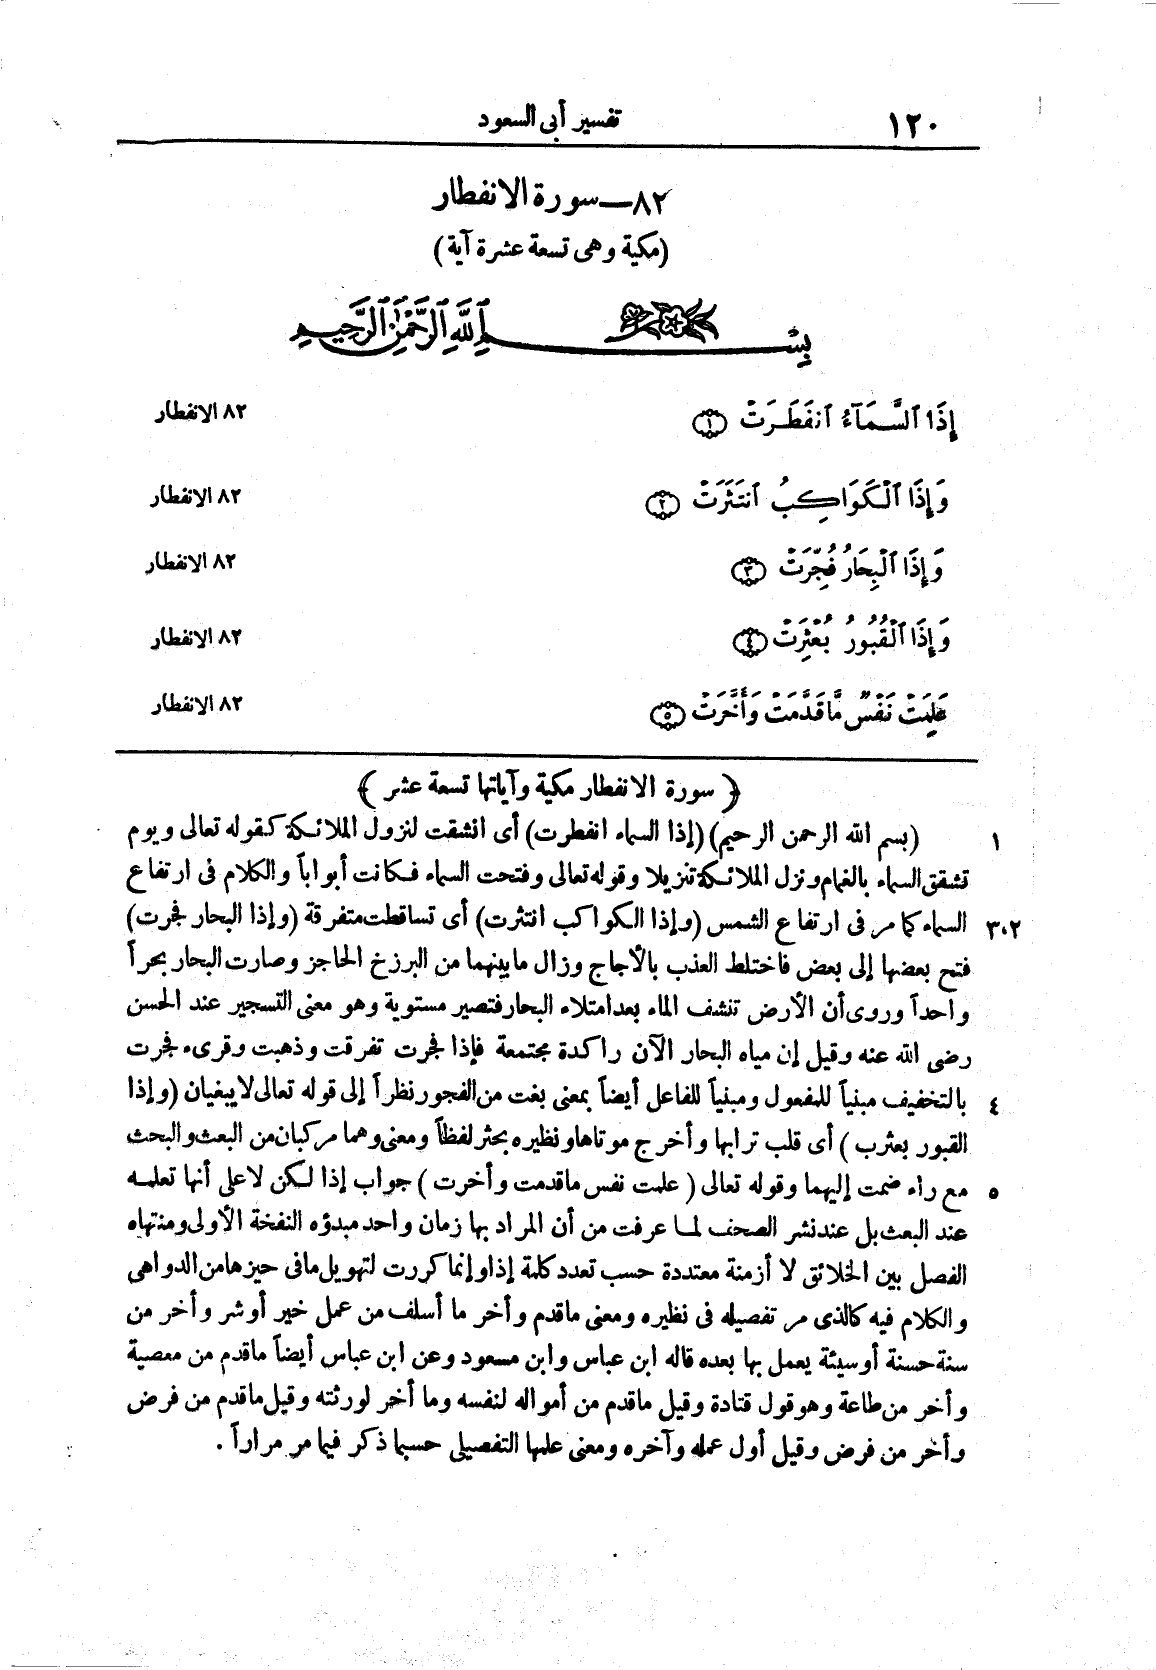 ١٢٠
تفسير أبى السعود
٨٢ــ سورة الانفطار
(مكية وهى تسعة عشرة آية)
بِسْــمِ ٱللَّهِ ٱلرَّحْمَٰنِ ٱلرَّحِيمِ
إِذَا ٱلسَّمَآءُ ٱنفَطَرَتْ ١ ٨٢ الانفطار
وَإِذَا ٱلْكَوَاكِبُ ٱنتَثَرَتْ ٢ ٨٢ الانفطار
وَإِذَا ٱلْبِحَارُ فُجِّرَتْ ٣ ٨٢ الانفطار
وَإِذَا ٱلْقُبُورُ بُعْثِرَتْ ٤ ٨٢ الانفطار
عَلِمَتْ نَفْسٌ مَّا قَدَّمَتْ وَأَخَّرَتْ ٥ ٨٢ الانفطار
﴿ سورة الانفطار مكية وآياتها تسعة عشر ﴾
١ (بسم الله الرحمن الرحيم) (إذا السماء انفطرت) أى انشقت لنزول الملائكة كقوله تعالى ويوم
تشقق السماء بالغمام ونزل الملائكة تنزيلا وقوله تعالى وفتحت السماء فكانت أبواباً والكلام فى ارتفاع
٣،٢ السماء كما مر فى ارتفاع الشمس (وإذا الكواكب انتثرت) أى تساقطت متفرقة (وإذا البحار فجرت)
فتح بعضها إلى بعض فاختلط العذب بالأجاج وزال ما بينهما من البرزخ الحاجز وصارت البحار بحراً
واحداً وروى أن الأرض تنشف الماء بعد امتلاء البحار فتصير مستوية وهو معنى التسجير عند الحسن
رضى الله عنه وقيل إن مياه البحار الآن راكدة مجتمعة فإذا فجرت تفرقت وذهبت وقرىء فجرت
٤ بالتخفيف مبنياً للمفعول ومبنياً للفاعل أيضاً بمعنى بغت من الفجور نظراً إلى قوله تعالى لا يبغيان (وإذا
القبور بعثرب ) أى قلب ترابها وأخرج موتاها ونظيره بحثر لفظاً ومعنى وهما مركبان من البعث والبحث
٥ مع راء ضمت إليهما وقوله تعالى ( علمت نفس ما قدمت وأخرت ) جواب إذا لكن لا على أنها تعلمه
عند البعث بل عند نشر الصحف لما عرفت من أن المراد بها زمان واحد مبدؤه النفخة الأولى ومنتهاه
الفصل بين الخلائق لا أزمنة معتددة حسب تعدد كلمة إذا وإنما كررت لتهويل ما فى حيزها من الدواهى
والكلام فيه كالذى مر تفصيله فى نظيره ومعنى ما قدم وأخر ما أسلف من عمل خير أو شر وأخر من
سنة حسنة أو سيئة يعمل بها بعده قاله ابن عباس وابن مسعود وعن ابن عباس أيضاً ما قدم من معصية
وأخر من طاعة وهو قول قتادة وقيل ما قدم من أمواله لنفسه وما أخر لورثته وقيل ما قدم من فرض
وأخر من فرض وقيل أول عمله وآخره ومعنى علمها التفصيلى حسبما ذكر فيما مر مراراً .